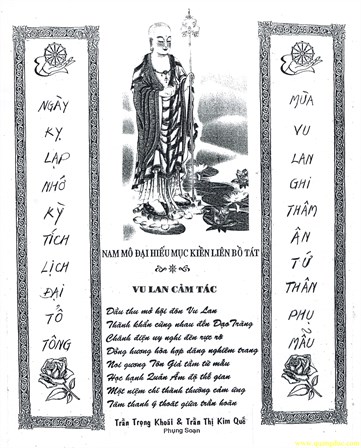 NGÀY
KỴ
LẠP
NHỚ
KỲ
TÍCH
LỊCH
ĐẠI
TỔ
TÔNG
NAM MÔ ĐẠI HIẾU MỤC KIỀN LIÊN BỒ TÁT
VU LAN CẢM TÁC
Đầu thu mở hội đón Vu Lan
Thành khẩn cùng nhau đến Đạo Tràng
Chánh điện uy nghi đèn rực rỡ
Đồng hương hòa hợp dáng nghiêm trang
Noi gương Tôn Giả tầm từ mẫu
Học hạnh Quán Âm độ thế gian
Một niệm chí thành thường cảm ứng
Tâm thanh ý thoát giữa trần hoàn
Trần Trọng Khoái & Trần Thị Kim Quế
Phụng Soạn
MÙA
VU
LAN
GHI
THÂM
ÂN
TỨ
THÂN
PHỤ
MẪU